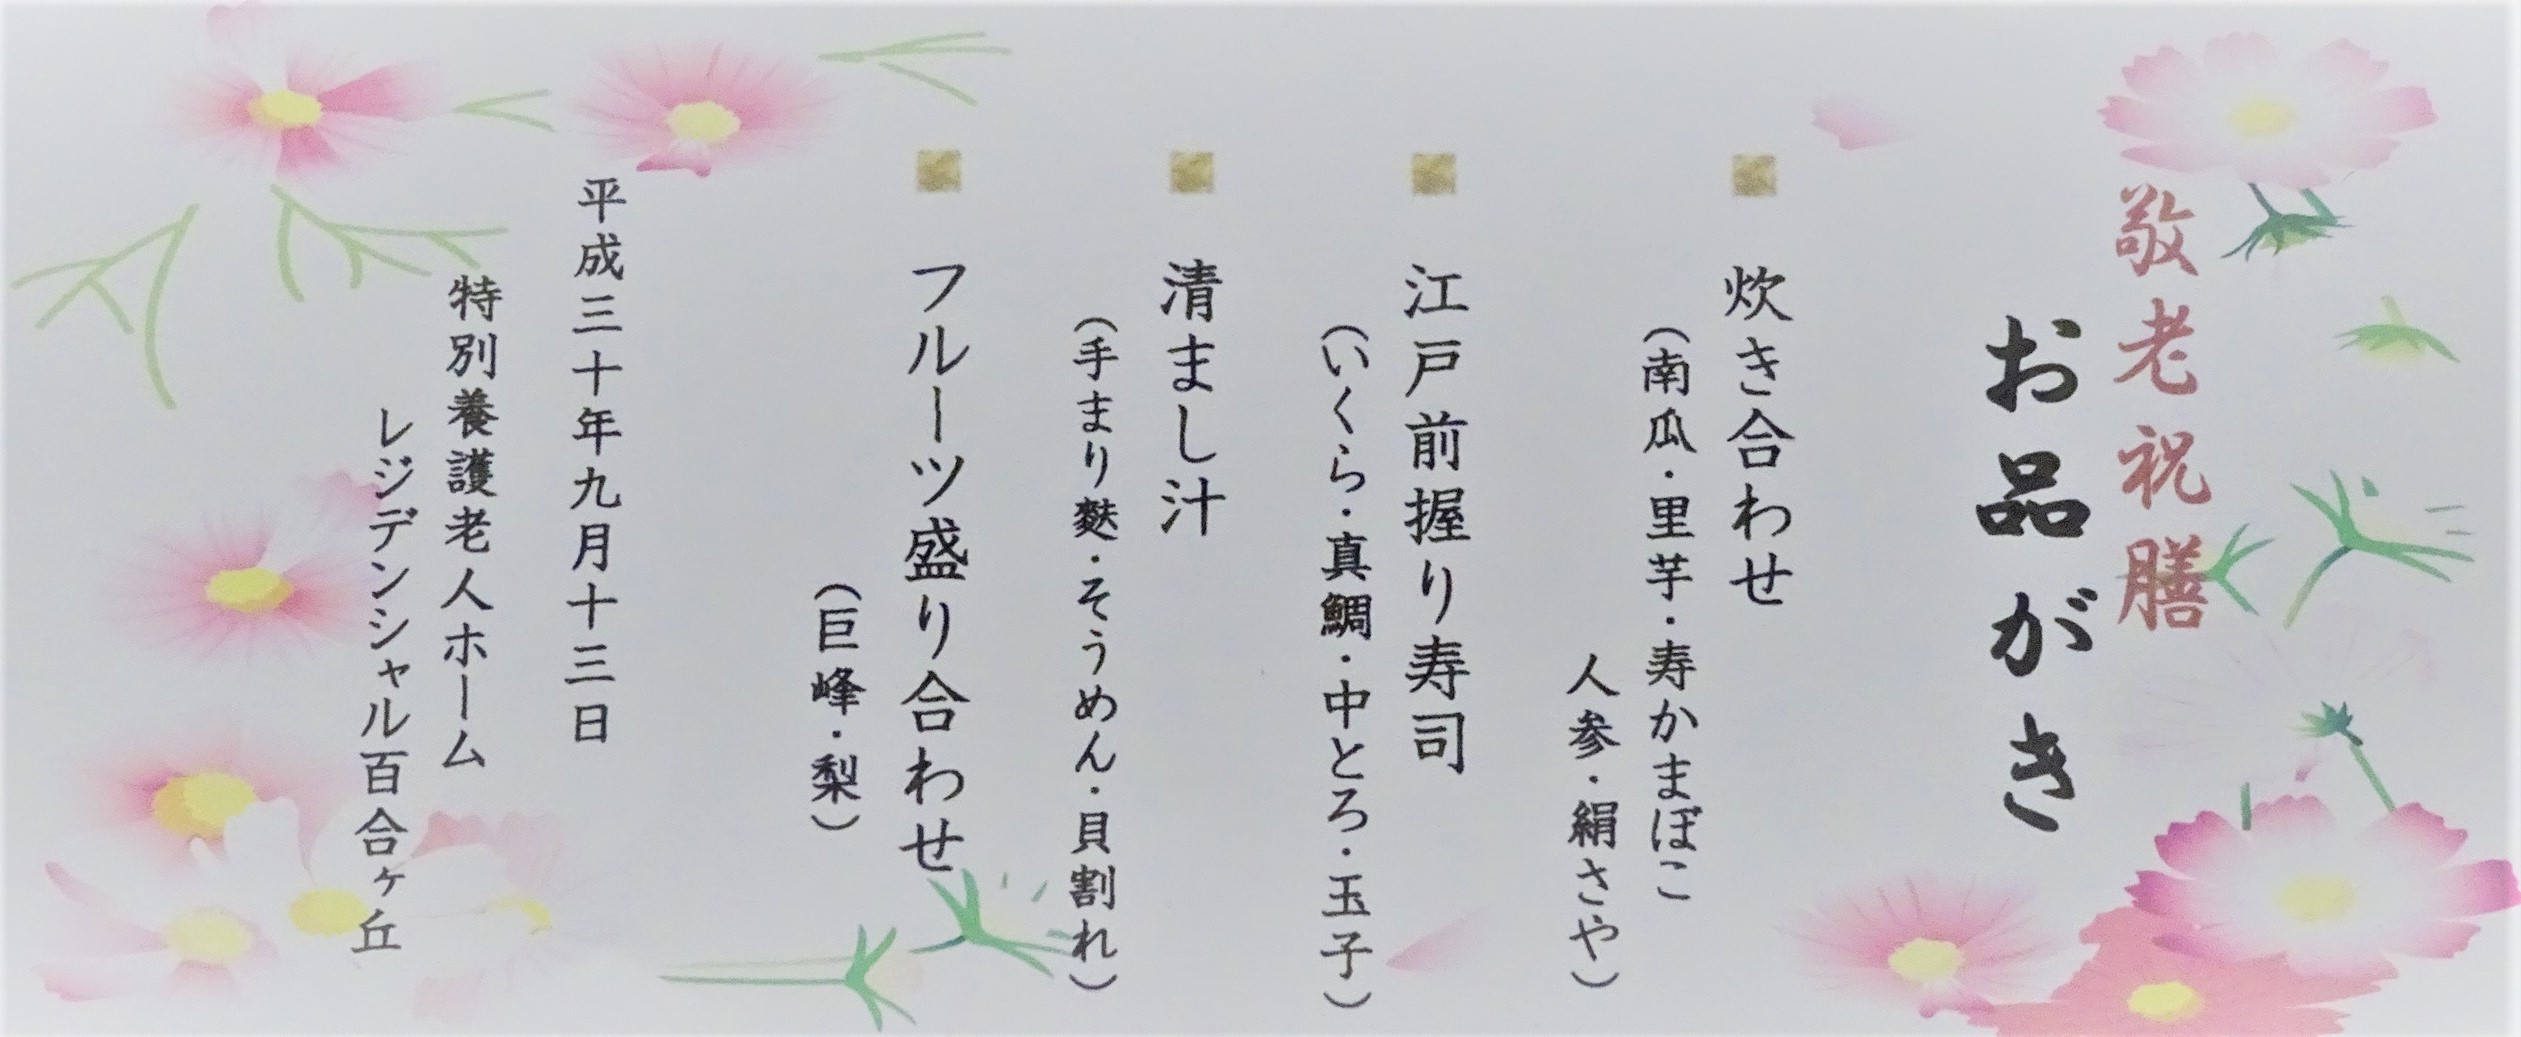 敬老祝膳
お品がき
炊き合わせ
（南瓜・里芋・寿かまぼこ
人参・絹さや）
江戸前握り寿司
（いくら・真鯛・中とろ・玉子）
清まし汁
（手まり麩・そうめん・貝割れ）
フルーツ盛り合わせ
（巨峰・梨）
平成三十年九月十三日
特別養護老人ホーム
レジデンシャル百合ヶ丘